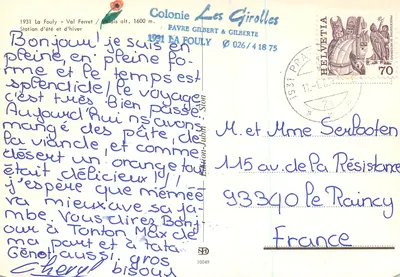 1931 La Fouly - Val Ferret / alt. 1600 m.
Station d'été et d'hiver
Colonie Les Girolles
FAVRE GILBERT & GILBERTE
1931 LA FOULY ✆ 026 / 4 18 75
HELVETIA
70
1931 PRA
Bonjour je suis en
pleine, en pleine for
me et le temps est
splendide! le voyage
c'est très Bien passé.
Aujourd'hui ns avons
mangé des pâtes de
la viande, et comme
désert un orange tou
était délicieux!!!
j'espère que mémée
va mieux avec sa jam-
be. Vous direz Bonj
our à Tonton Max de
ma part et à tata
Génot aussi. gros
Cheryl bisous
M. et Mme Serlooten
115 av. de la Résistance
93340 le Raincy
France
10049